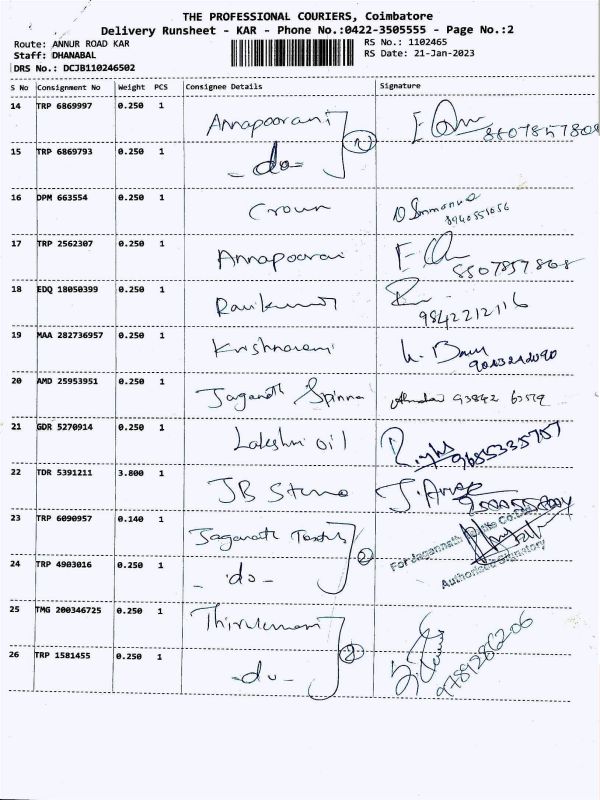 THE PROFESSIONAL COURIERS, Coimbatore
Delivery Runsheet - KAR - Phone No.:0422-3505555 - Page No.:2
Route: ANNUR ROAD KAR
RS No.: 1102465
Staff: DHANABAL
RS Date: 21-Jan-2023
DRS No.: DCJB110246502
S No Consignment No Weight PCS Consignee Details Signature
14 TRP 6869997 0.250 1 Annapoorani 8807857808
15 TRP 6869793 0.250 1 -do-
16 DPM 663554 0.250 1 Crown 8940551056
17 TRP 2562307 0.250 1 Annapoorani 8807857808
18 EDQ 18050399 0.250 1 Ravikumar 9842212116
19 MAA 282736957 0.250 1 Krishnaveni
20 AMD 25953951 0.250 1 Jaganath Spinna 93842 63519
21 GDR 5270914 0.250 1 Lakshmi oil 9685335757
22 TDR 5391211 3.800 1 JB
23 TRP 6090957 0.140 1 Jaganath
For Jagannath
Authorised Signatory
24 TRP 4903016 0.250 1 -do- 2
25 TMG 200346725 0.250 1 Thirukumaran
26 TRP 1581455 0.250 1 -do- 2 9789286206